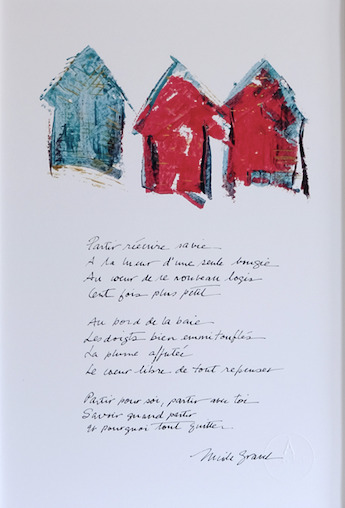 Partir réécrire sa vie
A la lueur d'une seule bougie
Au coeur de ce nouveau logis
Cent fois plus petit
Au bord de la baie
Les doigts bien emmitouflés
La plume affutée
Le coeur libre de tout repenser
Partir pour soi, partir avec toi
Savoir quand partir
et pourquoi tout quitter